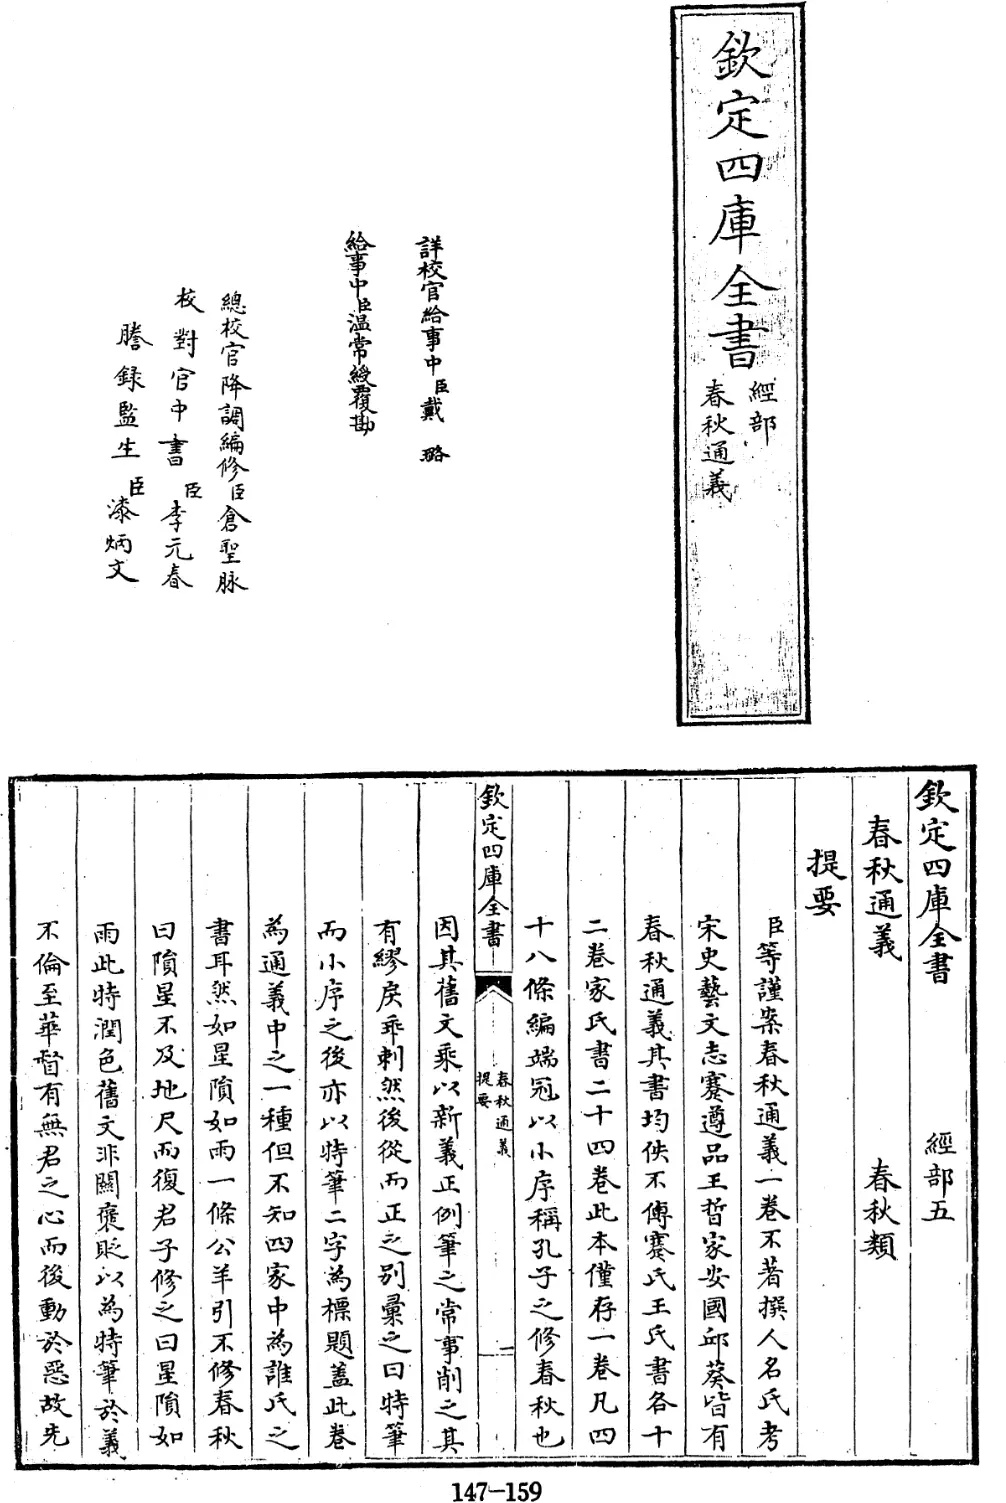 欽定四庫全書
經部
春秋通義
詳校官給事中臣戴璐
給事中臣温常綬覆勘
總校官降調編修臣倉聖脉
校對官中書臣李元春
謄錄監生臣漆炳文
欽定四庫全書 經部五
春秋通義 春秋類
提要
臣等謹案春秋通義一卷不著撰人名氏考
宋史藝文志蹇遵品王晳家安國邱葵皆有
春秋通義其書均佚不傳蹇氏王氏書各十
二卷家氏書二十四卷此本僅存一卷凡四
十八條編端冠以小序稱孔子之修春秋也
欽定四庫全書
春秋通義
提要
一
因其舊文乘以新義正例筆之常事削之其
有繆戾乖剌然後從而正之别彙之曰特筆
而小序之後亦以特筆二字為標題蓋此卷
為通義中之一種但不知四家中為誰氏之
書耳然如星隕如雨一條公羊引不修春秋
曰隕星不及地尺而復君子修之曰星隕如
雨此特潤色舊文非關褒貶以為特筆於義
不倫至華督有無君之心而後動於惡故先
147-159